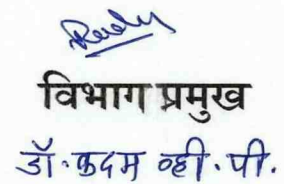 विभाग प्रमुख
डॉ. कदम व्ही. पी.